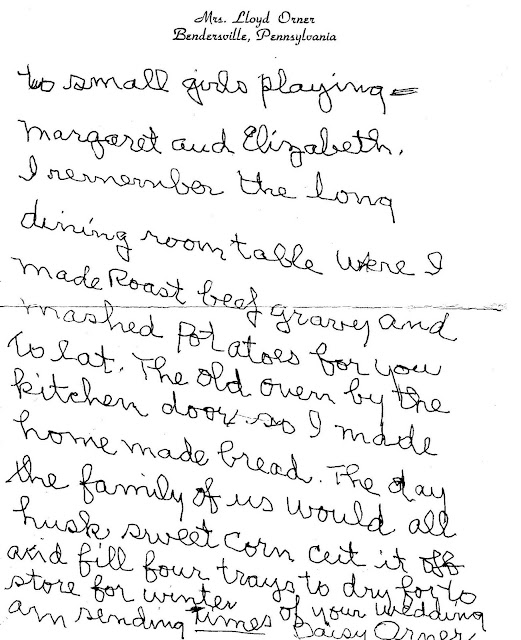 Mrs. Lloyd Orner
Bendersville, Pennsylvania
two small girls playing =
Margaret and Elizabeth.
I remember the long
dining room table were I
made Roast beef gravey and
mashed potatoes for you
to eat. The old oven by the
kitchen door so I made
home made bread. The day
the family of us would all
husk sweet corn cut it off
and fill four trays to dry for to
store for winter
am sending times of your wedding
Daisy Orner